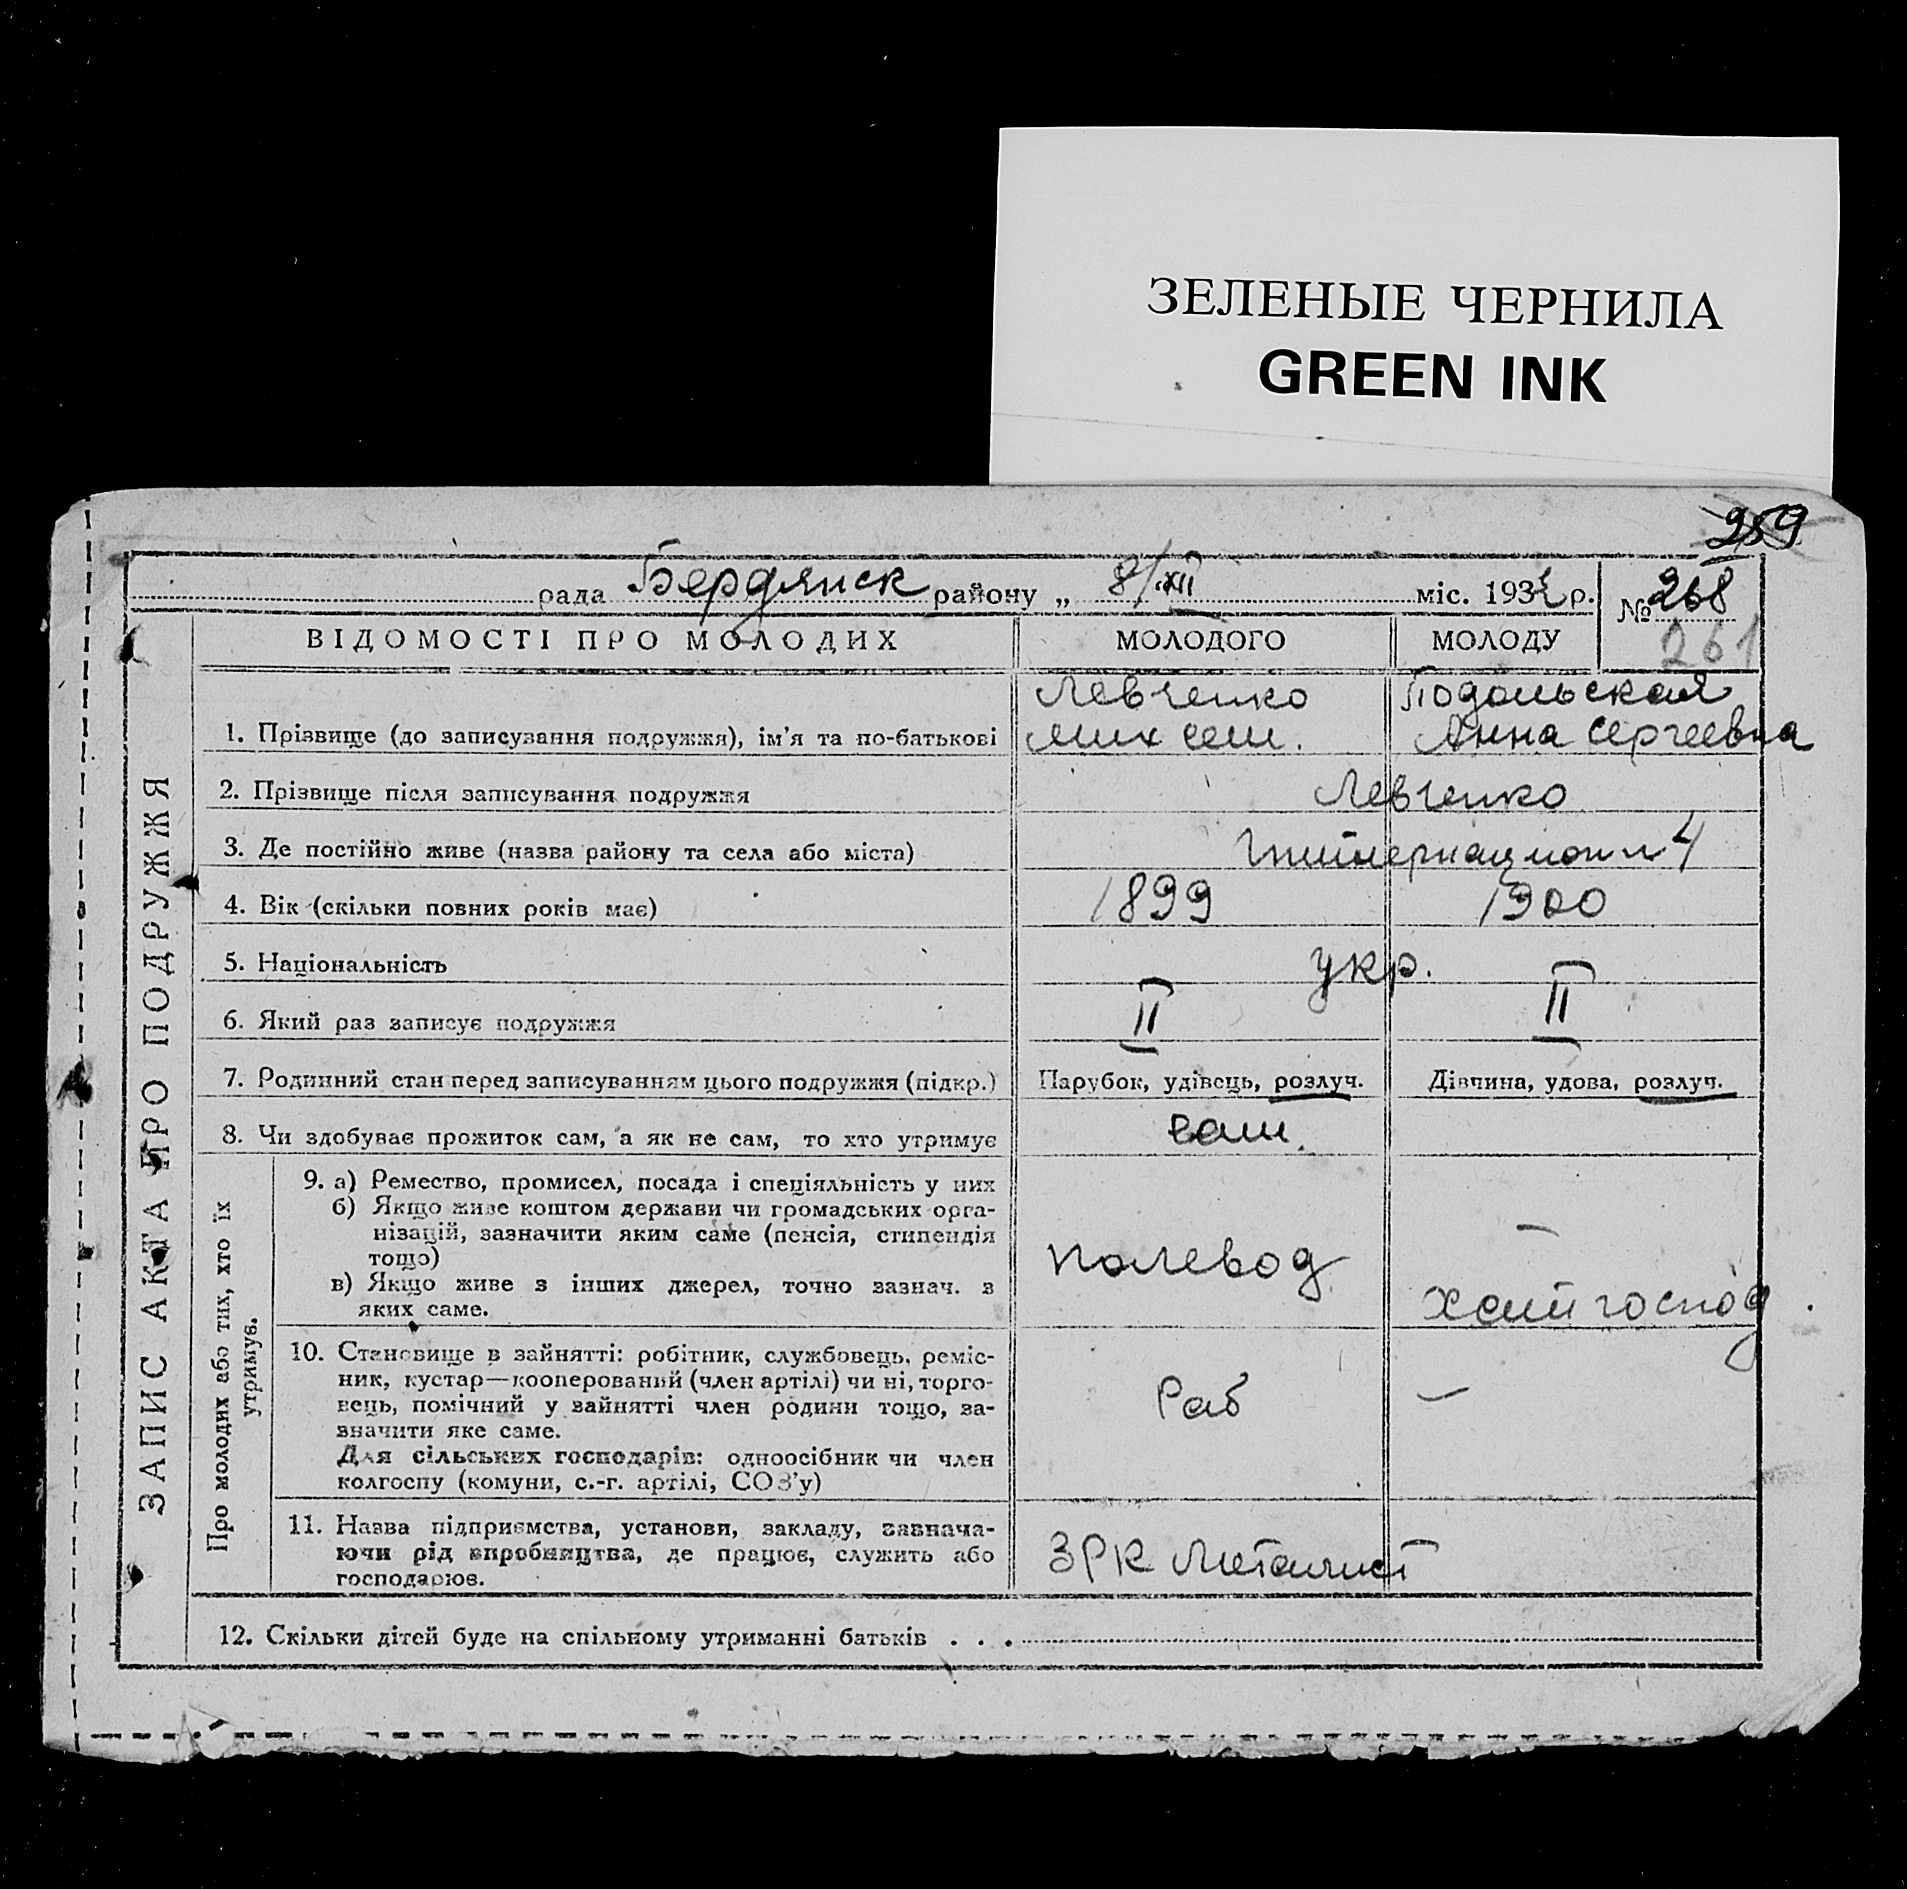 ЗЕЛЕНЫЕ ЧЕРНИЛА
GREEN INK
259
рада Бердянск району „ 8/XII міс. 193 р.
№ 268
261
ВІДОМОСТІ ПРО МОЛОДИХ МОЛОДОГО МОЛОДУ
Левченко Подольская
1. Прізвище (до записування подружжя), ім'я та по-батькові Мих Сем. Анна Сергеевна
2. Прізвище після записування подружжя Левченко
3. Де постійно живе (назва району та села або міста) 4
4. Вік (скільки повних років має) 1899 1900
5. Національність укр.
6. Який раз записує подружжя II II
7. Родинний стан перед записуванням цього подружжя (підкр.) Парубок, удівець, розлуч. Дівчина, удова, розлуч.
8. Чи здобуває прожиток сам, а як не сам, то хто утримує сам.
9. а) Ремество, промисел, посада і спеціяльність у них
б) Якщо живе коштом держави чи громадських орга-
нізацій, зазначити яким саме (пенсія, стипендія
тощо)
в) Якщо живе з інших джерел, точно зазнач. з
яких саме.
полевод
— хатн господ.
10. Становище в зайнятті: робітник, службовець, реміс-
ник, кустар—кооперований (член артілі) чи ні, торго-
вець, помічний у зайнятті член родини тощо, за-
значити яке саме.
Для сільських господарів: одноосібник чи член
колгоспу (комуни, с.-г. артілі, СОЗ'у)
Раб —
11. Назва підприємства, установи, закладу, зазнача-
ючи рід виробництва, де працює, служить або
господарює.
ЗРК Металист
12. Скільки дітей буде на спільному утриманні батьків . . .
ЗАПИС АКТА ПРО ПОДРУЖЖЯ
Про молодих або тих, хто їх
утримує.